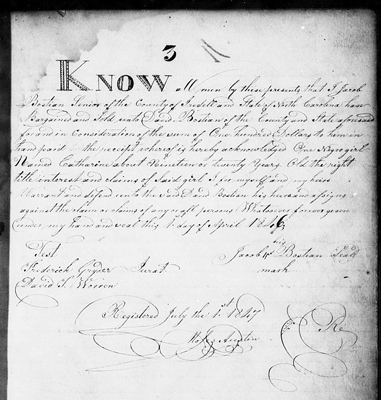 3
KNOW all men by these presents that I Jacob
Bostian Senior of the County of Iredell and State of North Carolina have
Bargained and Sold unto David Bostian of the County and State aforesaid
for and in Consideration of the sum of One hundred Dollars to him in
hand paid the receipt whereof is hereby acknowledged One Negro girl
Named Catharine about Nineteen or twenty Years Old the right
title interest and claims of Said girl I for myself and my heirs
Warrant and defend unto the Said David Bostian his heirs and assigns
against the claim or claims of any

 persons Whatsoever forever given
under my hand and seal this 1 day of April 1846
his
Test Jacob Bostian Seal
Frederick Jurat mark
David S.
Registered July the 1st 1847